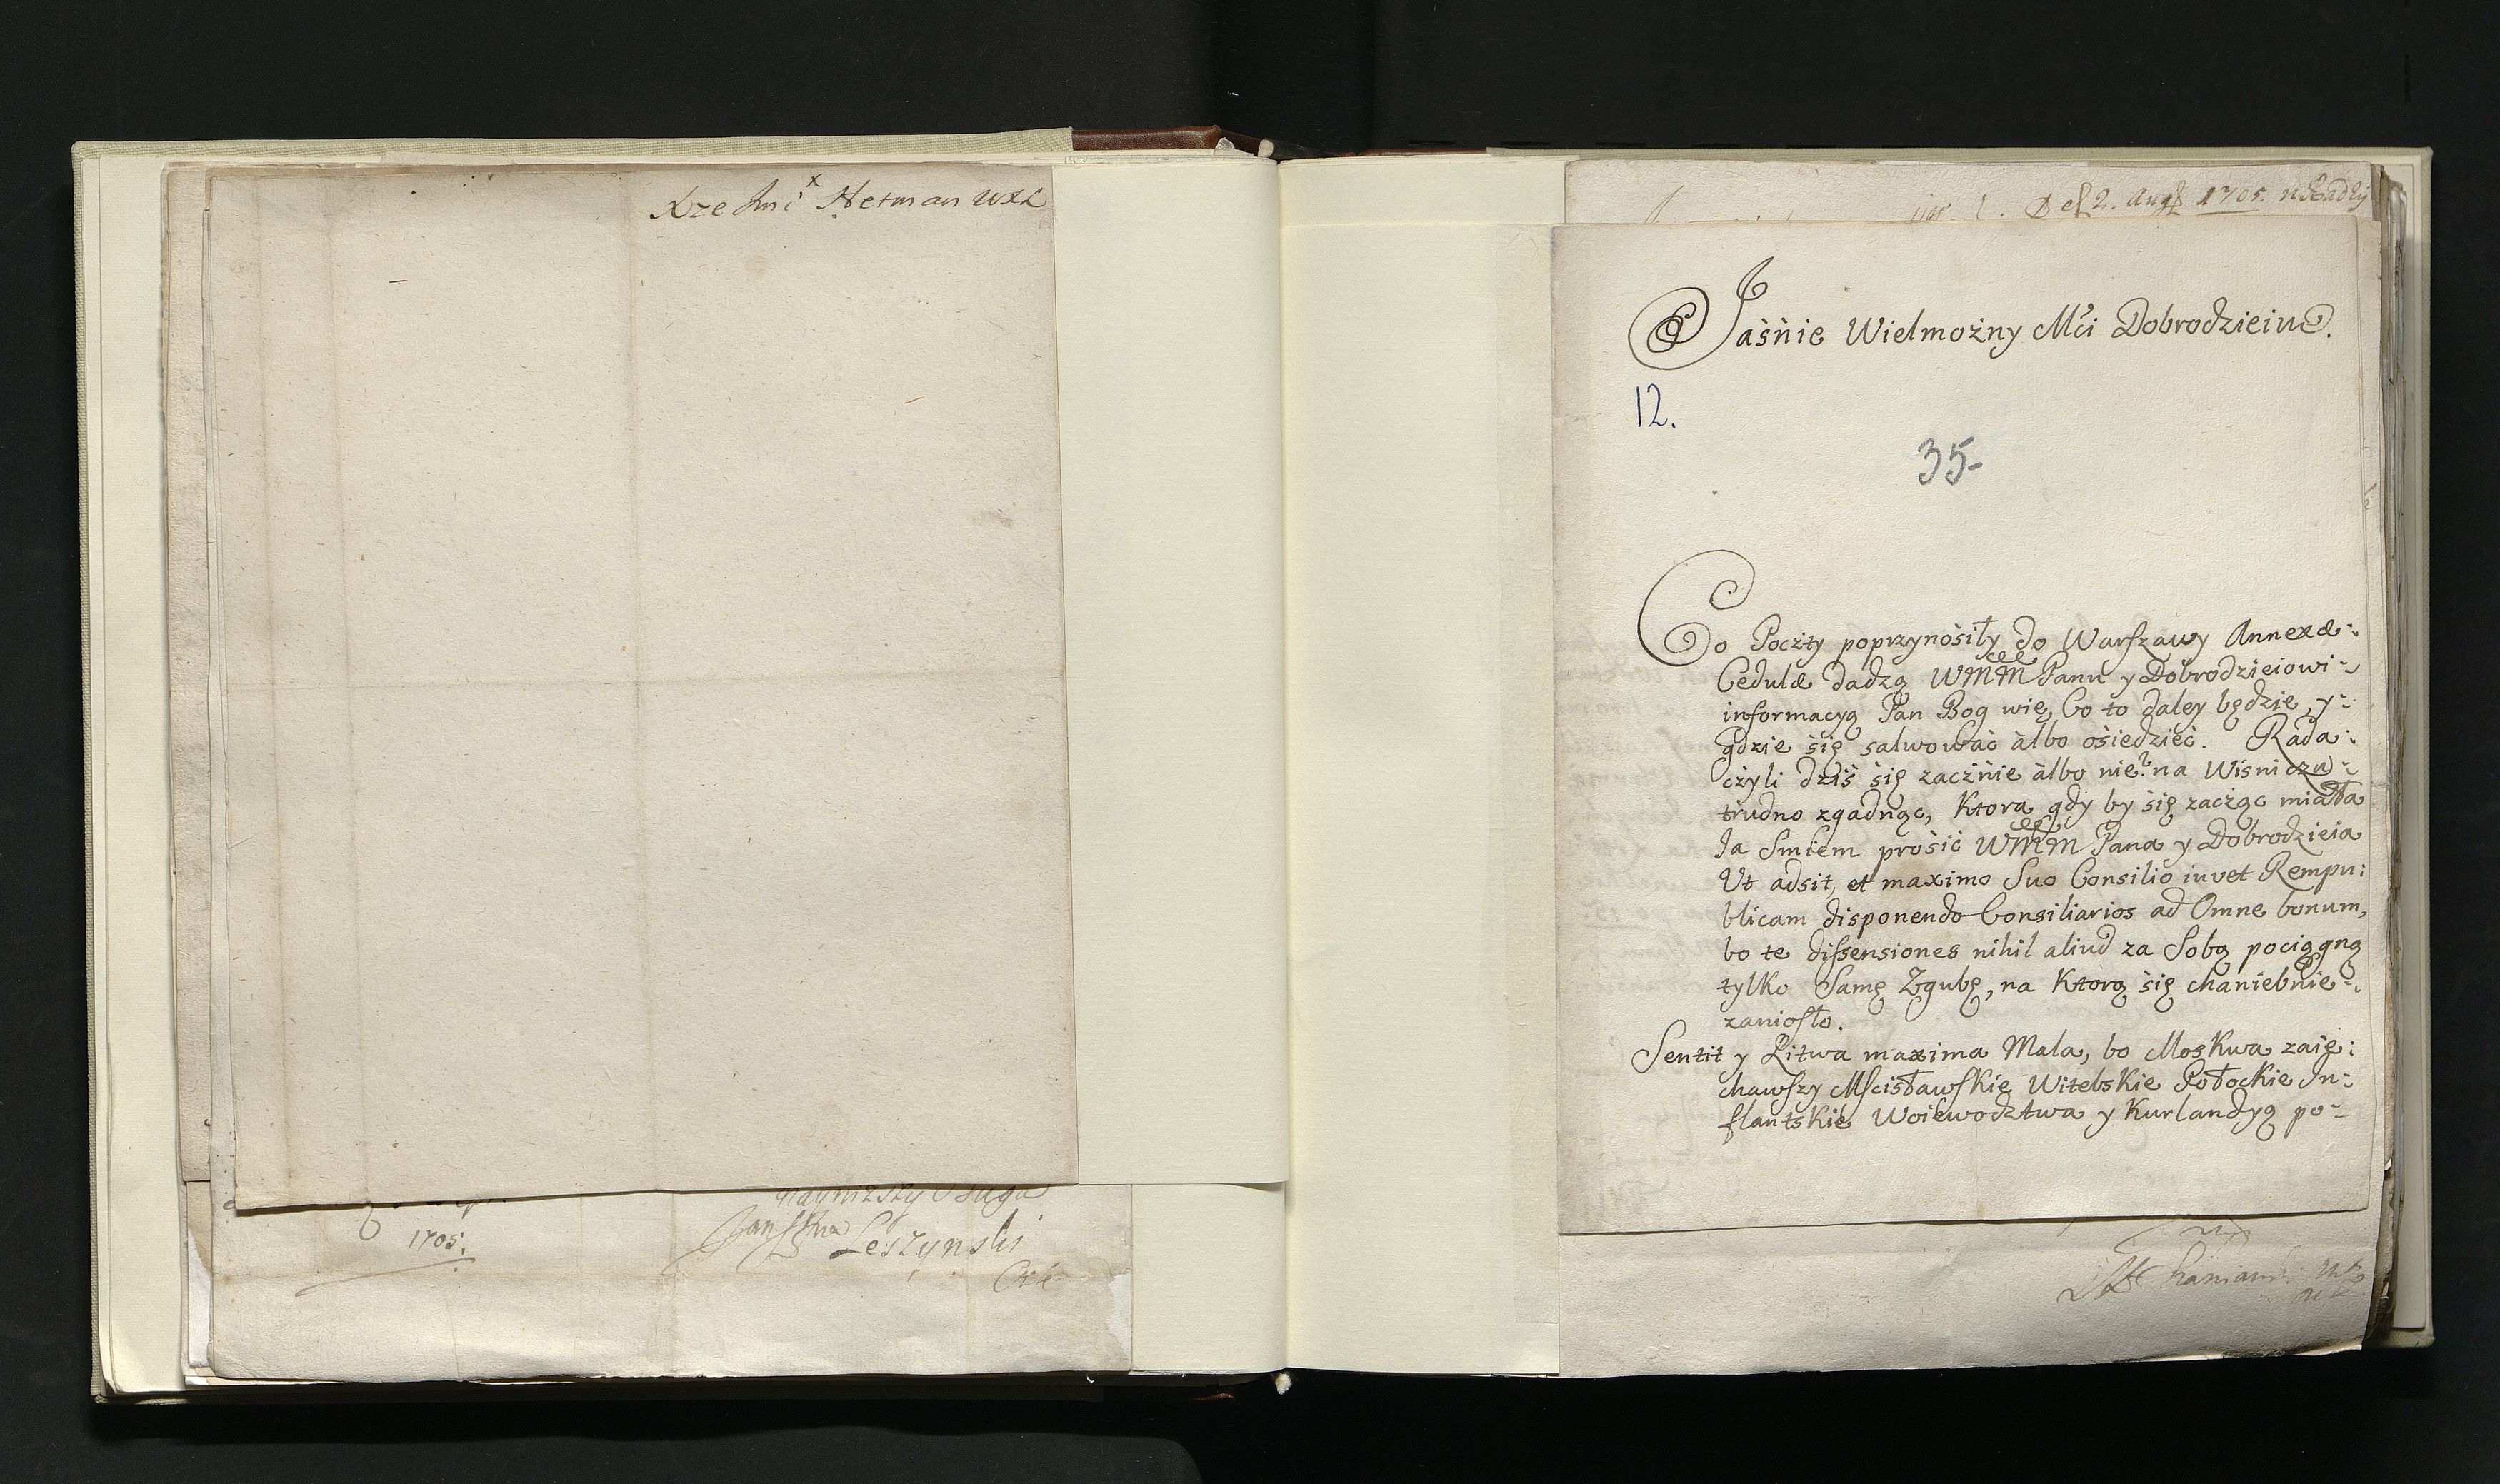 Xze Jmć Hetman WXL
naynizszy Sługa
1705.
Leszynski
Aug 1705.
Jaśnie Wielmożny Mći Dobrodzieiu.
12.
35-
Co Poczty poprzynosiły do Warszawy Annexæ
Cedulæ dadzą WMM Panu y Dobrodzieiowi
informacyą Pan Bog wie, Co to daley będzie, y
gdzie się salwować albo osiedzieć. Rada
czyli dziś się zacznie albo nie? na Wisniczu
trudno zgadnąc, Ktora gdy by się zacząc miała
Ja Smiem prosić WMM Pana y Dobrodzieia
Ut adsit, et maximo Suo Consilio iuvet Rempu:
blicam disponendo Consiliarios ad Omne bonum,
bo te dissensiones nihil aliud za Sobą pociągną
tylko Samę Zgubę, na Ktorą się chaniebnie
zaniosło.
Sentit y Litwa maxima Mala, bo Moskwa zaie:
chawszy Mscisławskie Witebskie Połockie In:
flantskie Woiewodztwa y Kurlandyą po-